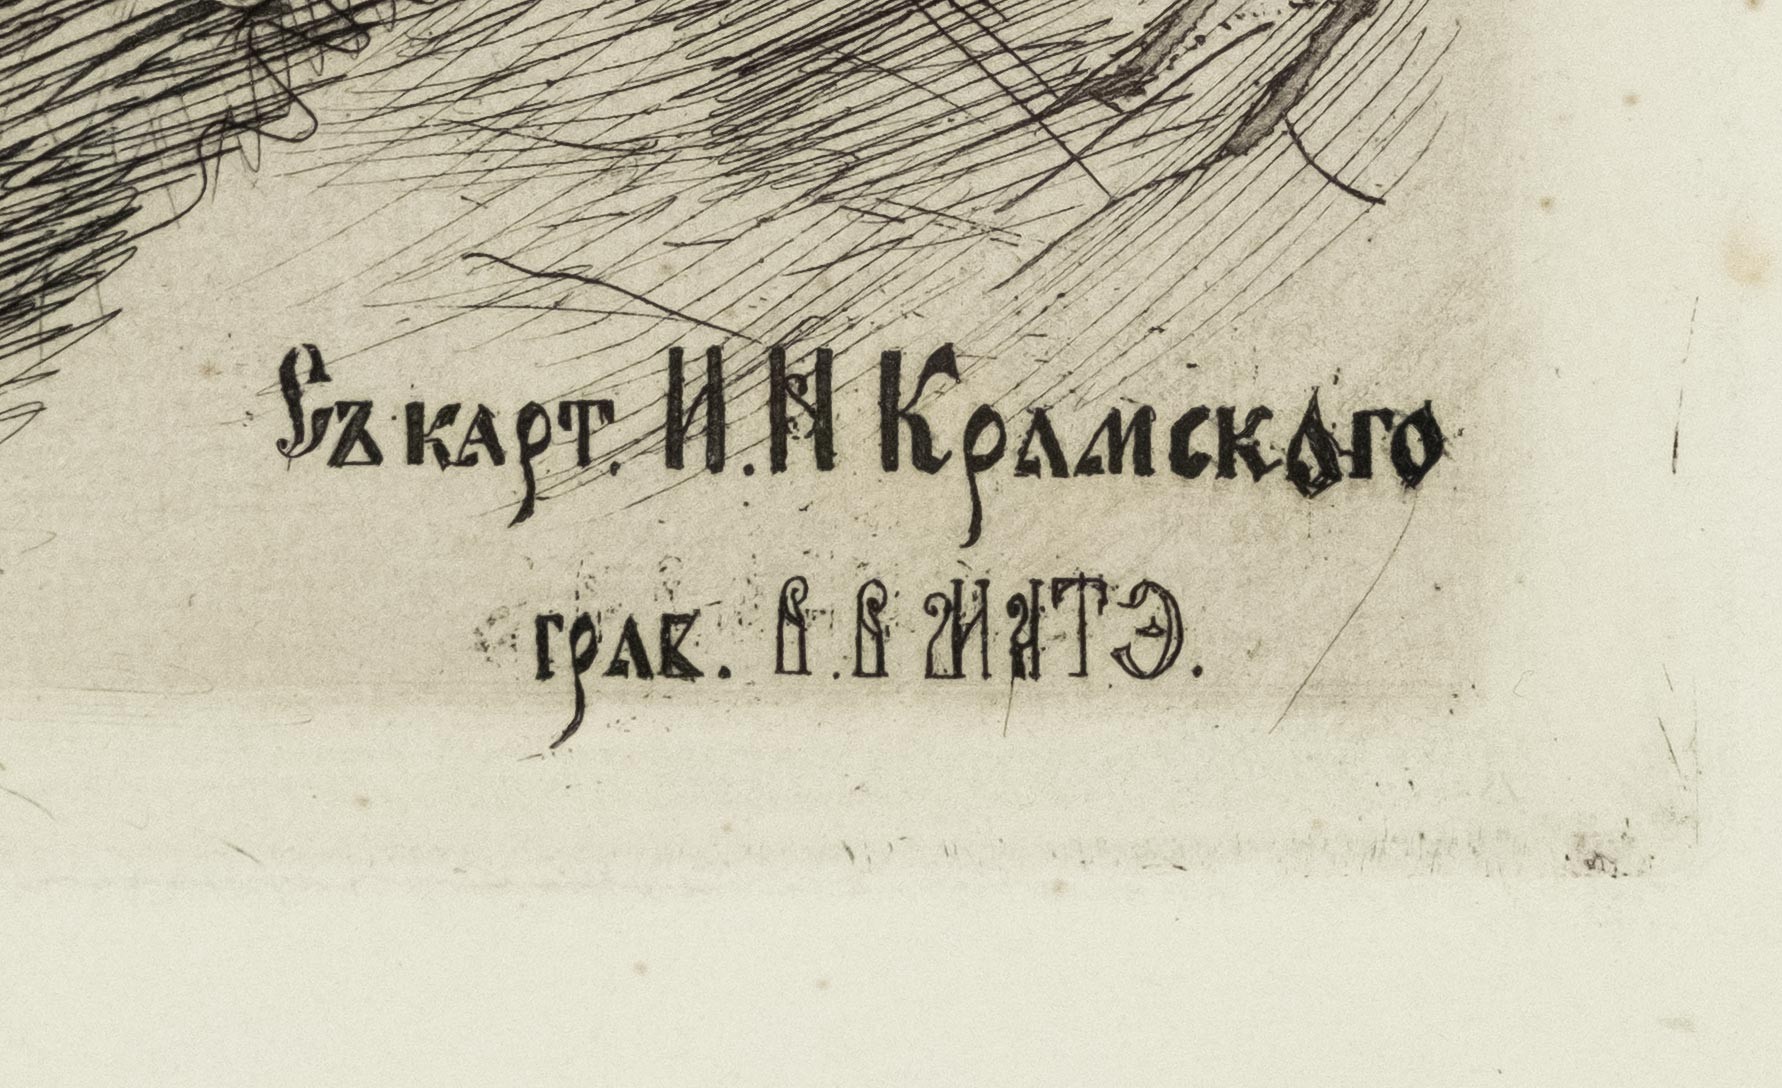 Съ карт. И.Н Крамского
грав. В.В МАТЭ.